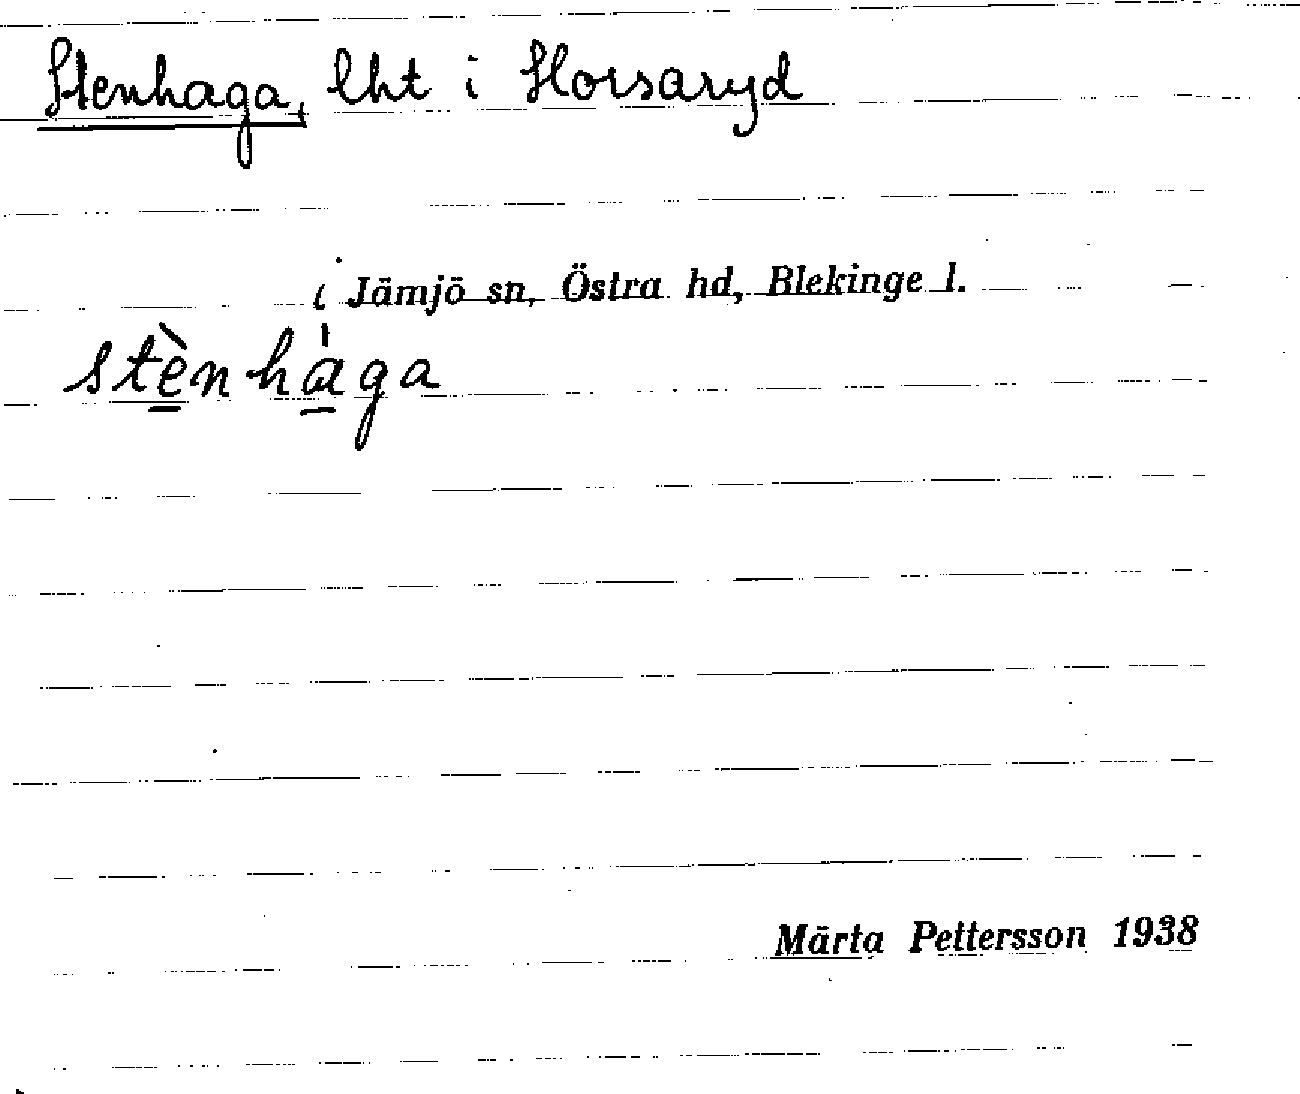 Stenhaga, lht i Horsaryd
i Jämjö sn, Östra hd, Blekinge l.
stè̱nha̱̍ga
Märta Pettersson 1938